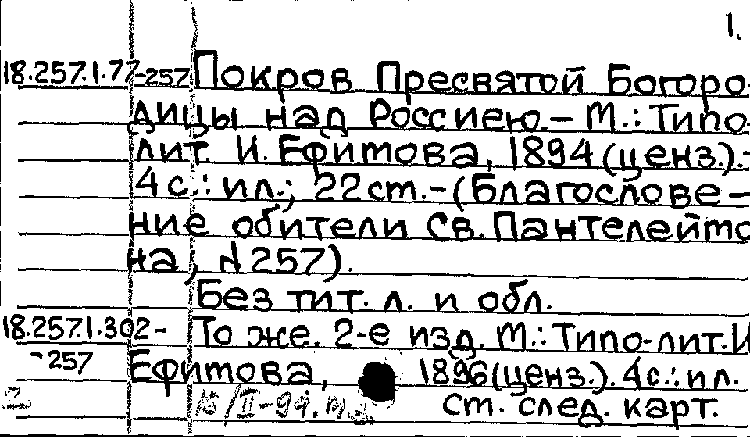 1.
18.257.1.77-257 Покров Пресвятой Богоро-
дицы над Россиею.– М.: Типо-
лит И. Ефимова, 1894 (ценз.).-
4 с.: ил.; 22 ст.-(Благослове-
ние обители Св. Пантелеймо
на, №257).
Без тит. л. и обл.
18.257.1.302- То же. 2-е изд. М.: Типо-лит. И
-257 Ефимова, 1896 (ценз.). 4с.: ил.
ст. след. карт.